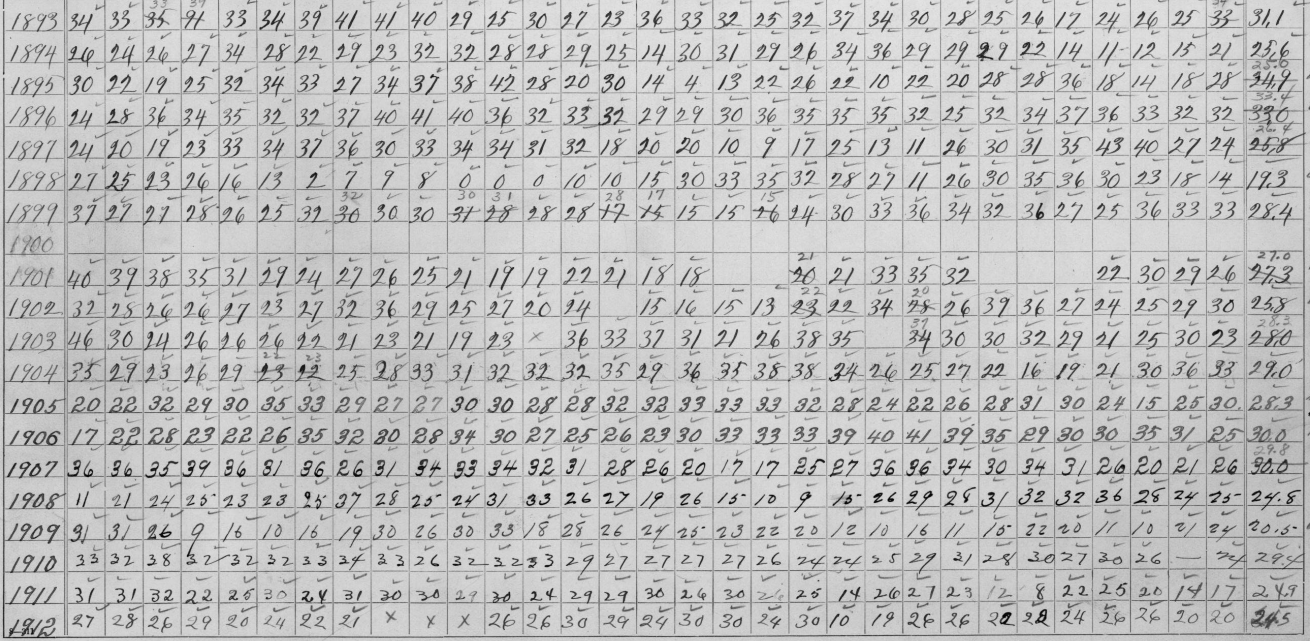 1893 34 33 35 91 33 34 39 41 41 40 29 25 30 27 23 36 33 32 25 32 37 34 30 28 25 26 17 24 26 25 33 31.1
1894 26 24 26 27 34 28 22 29 23 32 32 28 28 29 25 14 30 31 29 26 34 36 29 29 29 22 14 11 12 15 21 25.6
1895 30 22 19 25 32 34 33 27 34 37 38 42 28 20 30 14 4 13 22 26 22 10 22 20 28 28 36 18 14 18 28 34.9 25.0
1896 24 28 36 34 35 32 32 37 40 41 40 36 32 33 32 29 29 30 36 35 35 35 32 25 32 34 37 36 33 32 32 33.0 33.4
1897 24 20 19 23 33 34 37 36 30 33 34 34 31 32 18 20 20 10 9 17 25 13 11 26 30 31 35 43 40 27 24 25.8 26.4
1898 27 25 23 26 16 13 2 7 9 8 0 0 0 10 10 15 30 33 35 32 28 27 11 26 30 35 36 30 23 18 14 19.3
32 30 31 28 17 15
1899 37 27 27 28 26 25 32 30 30 30 31 28 28 28 17 15 15 15 16 24 30 33 36 34 32 36 27 25 36 33 33 28.4
1900
21 27.0
1901 40 39 38 35 31 29 24 27 26 25 21 19 19 22 21 18 18 20 21 33 35 32 22 30 29 26 27.3
22 20
1902 32 28 26 26 27 23 27 32 36 29 25 27 20 24 15 16 15 13 23 22 34 28 26 39 36 27 24 25 29 30 25.8
28.3
1903 46 30 24 26 26 26 22 21 23 21 19 23 x 36 33 37 31 21 26 38 35 34 30 30 32 29 21 25 30 23 28.0
22 23
1904 35 29 23 26 29 23 22 25 28 33 31 32 32 32 35 29 36 35 38 38 34 26 25 27 22 16 19 21 30 36 33 29.0
1905 20 22 32 29 30 35 33 29 27 27 30 30 28 28 32 32 33 33 33 32 28 24 22 26 28 31 30 24 15 25 30 28.3
1906 17 22 28 23 22 26 35 32 30 28 34 30 27 25 26 23 30 33 33 33 39 40 41 39 35 29 30 30 35 31 25 30.0
29.8
1907 36 36 35 39 36 31 36 26 31 34 33 34 32 31 28 26 20 17 17 25 27 36 36 34 30 34 31 26 20 21 26 30.0
1908 11 21 24 25 23 23 25 27 28 25 24 31 33 26 27 19 26 15 10 9 15 26 29 28 31 32 32 36 28 24 25 24.8
1909 31 31 26 9 16 10 16 19 30 26 30 33 18 28 26 24 25 23 22 20 12 10 16 11 15 22 20 11 10 21 24 20.5
1910 33 32 38 32 32 32 33 34 33 26 32 32 33 29 27 27 27 27 26 24 24 25 29 31 28 30 27 30 26 — 24 29.4
1911 31 31 32 22 25 30 24 31 30 30 29 30 24 29 29 30 26 30 26 25 14 26 27 23 12 8 22 25 20 14 17 24.9
1912 27 28 26 29 20 24 22 21 x x x 26 26 30 29 24 30 30 24 30 10 19 26 26 22 28 24 26 26 20 20 24.5